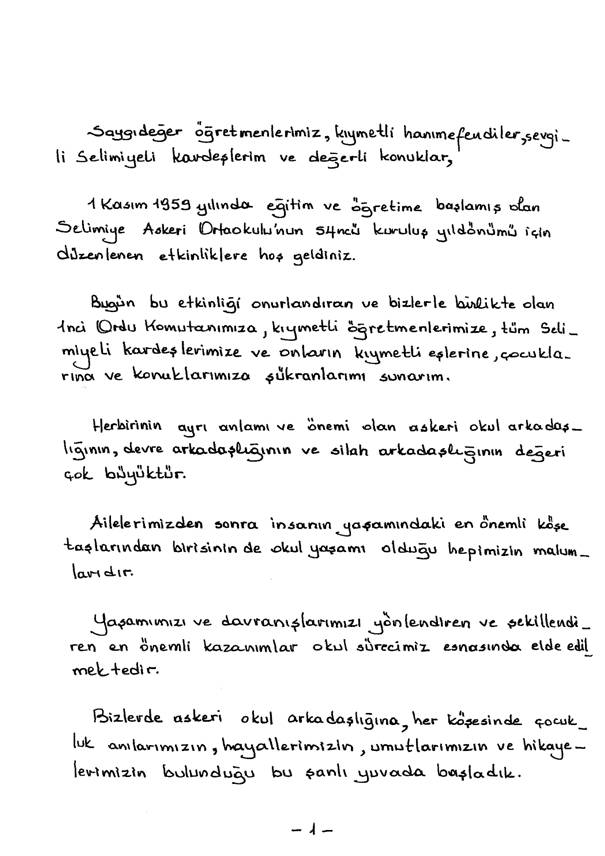 Saygıdeğer öğretmenlerimiz, kıymetli hanımefendiler, sevgi-
li Selimiyeli kardeşlerim ve değerli konuklar,
1 Kasım 1959 yılında eğitim ve öğretime başlamış olan
Selimiye Askeri Ortaokulu'nun 54ncü kuruluş yıldönümü için
düzenlenen etkinliklere hoş geldiniz.
Bugün bu etkinliği onurlandıran ve bizlerle birlikte olan
1nci Ordu Komutanımıza, kıymetli öğretmenlerimize, tüm Seli-
miyeli kardeşlerimize ve onların kıymetli eşlerine, çocukla-
rına ve konuklarımıza şükranlarımı sunarım.
Herbirinin ayrı anlamı ve önemi olan askeri okul arkadaş-
lığının, devre arkadaşlığının ve silah arkadaşlığının değeri
çok büyüktür.
Ailelerimizden sonra insanın yaşamındaki en önemli köşe
taşlarından birisinin de okul yaşamı olduğu hepimizin malum-
larıdır.
Yaşamımızı ve davranışlarımızı yönlendiren ve şekillendi-
ren en önemli kazanımlar okul sürecimiz esnasında elde edil-
mektedir.
Bizlerde askeri okul arkadaşlığına, her köşesinde çocuk-
luk anılarımızın, hayallerimizin, umutlarımızın ve hikaye-
lerimizin bulunduğu bu şanlı yuvada başladık.
- 1 -